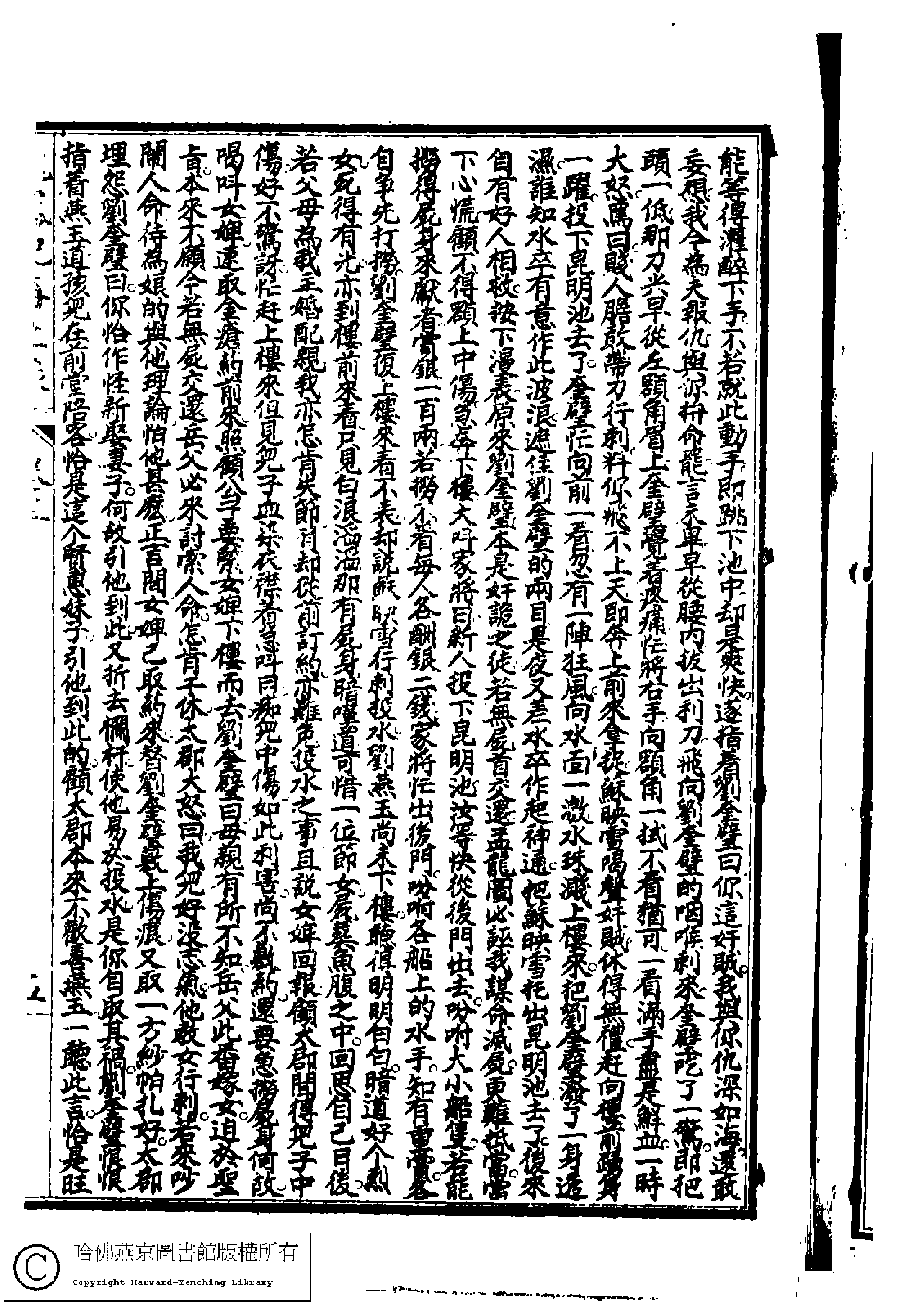 能等傳灌醉下手不若就此動手即跳下池中却是爽快遂指着劉奎璧曰你這奸賊我與你仇深如海還敢
妄想我今為夫報仇與你拚命罷言未畢早從腰內拔出利刀飛向劉奎璧的咽喉刺來奎璧吃了一驚即把
頭一低那刀尖早從左額角眉上奎璧覺着疼痛忙將右手向額角一拭不看猶可一看滿手盡是鮮血一時
大怒罵曰賤人膽敢帶刀行刺料你飛不上天即奔上前來拿捉蘇映雪隔聲奸賊休得無禮赶向樓前踴身
一躍投下昆明池去了奎璧忙向前一看忽有一陣狂風向水面一激水珠濺上樓來把劉奎璧潑了一身透
濕誰知水卒有意作此波浪遮住劉奎璧的兩目是夜叉差水卒作起神通把蘇映雪托出昆明池去了後來
自有好人相救按下漫表原來劉奎璧本是奸詭之徒若無屍首交還孟龍圖必誣我謀命滅屍更難抵當當
下心慌顧不得額上中傷急奔下樓大叫家將曰新人投下昆明池汝等快從後門出去吩咐大小船隻若能
撈得屍身來獻者賞銀一百兩若撈不着每人各酬銀二錢家將忙出後門吩咐各船上的水手知有重賞各
自爭先打撈劉奎璧復上樓來看不表却說蘇映雪行刺投水劉燕玉尚未下樓聽得明明白白暗道好个烈
女死得有光亦到樓前來看只見白浪滔滔那有屍身暗嘆道可惜一位節女屍葬魚腹之中回思自己日後
若父母為我主婚配親我亦怎肯失節負却從前訂約亦難免投水之事且說女婢回報顧太郡聞得兒子中
傷好不驚訝忙赶上樓來但見兒子血染衣襟着急叫曰痴兒中傷如此利害尚不敷約還要急撈屍身何故
喝叫女婢速取金瘡約前來照顧公子要緊女婢下樓而去劉奎璧曰母親有所不知岳父此番嫁女迫於聖
旨本來不願今若無屍交還岳父必來討索人命怎肯干休太郡大怒曰我兒好沒志氣他教女行刺若來吵
鬧人命待為娘的與他理論怕他甚麽正言間女婢已取約來替劉奎璧敷上傷痕又取一方紗帕扎好太郡
埋怨劉奎璧曰你怡作性新娶妻子何故引他到此又折去欄杆使他易於投水是你自取其禍劉奎璧懷恨
指着燕玉道孩兒在前堂陪客怡是這个賢惠妹子引他到此的顧太郡本來不歡喜燕玉一聽此言怡是旺
哈佛燕京圖書館版權所有
Copyright Harvard-Yenching Library